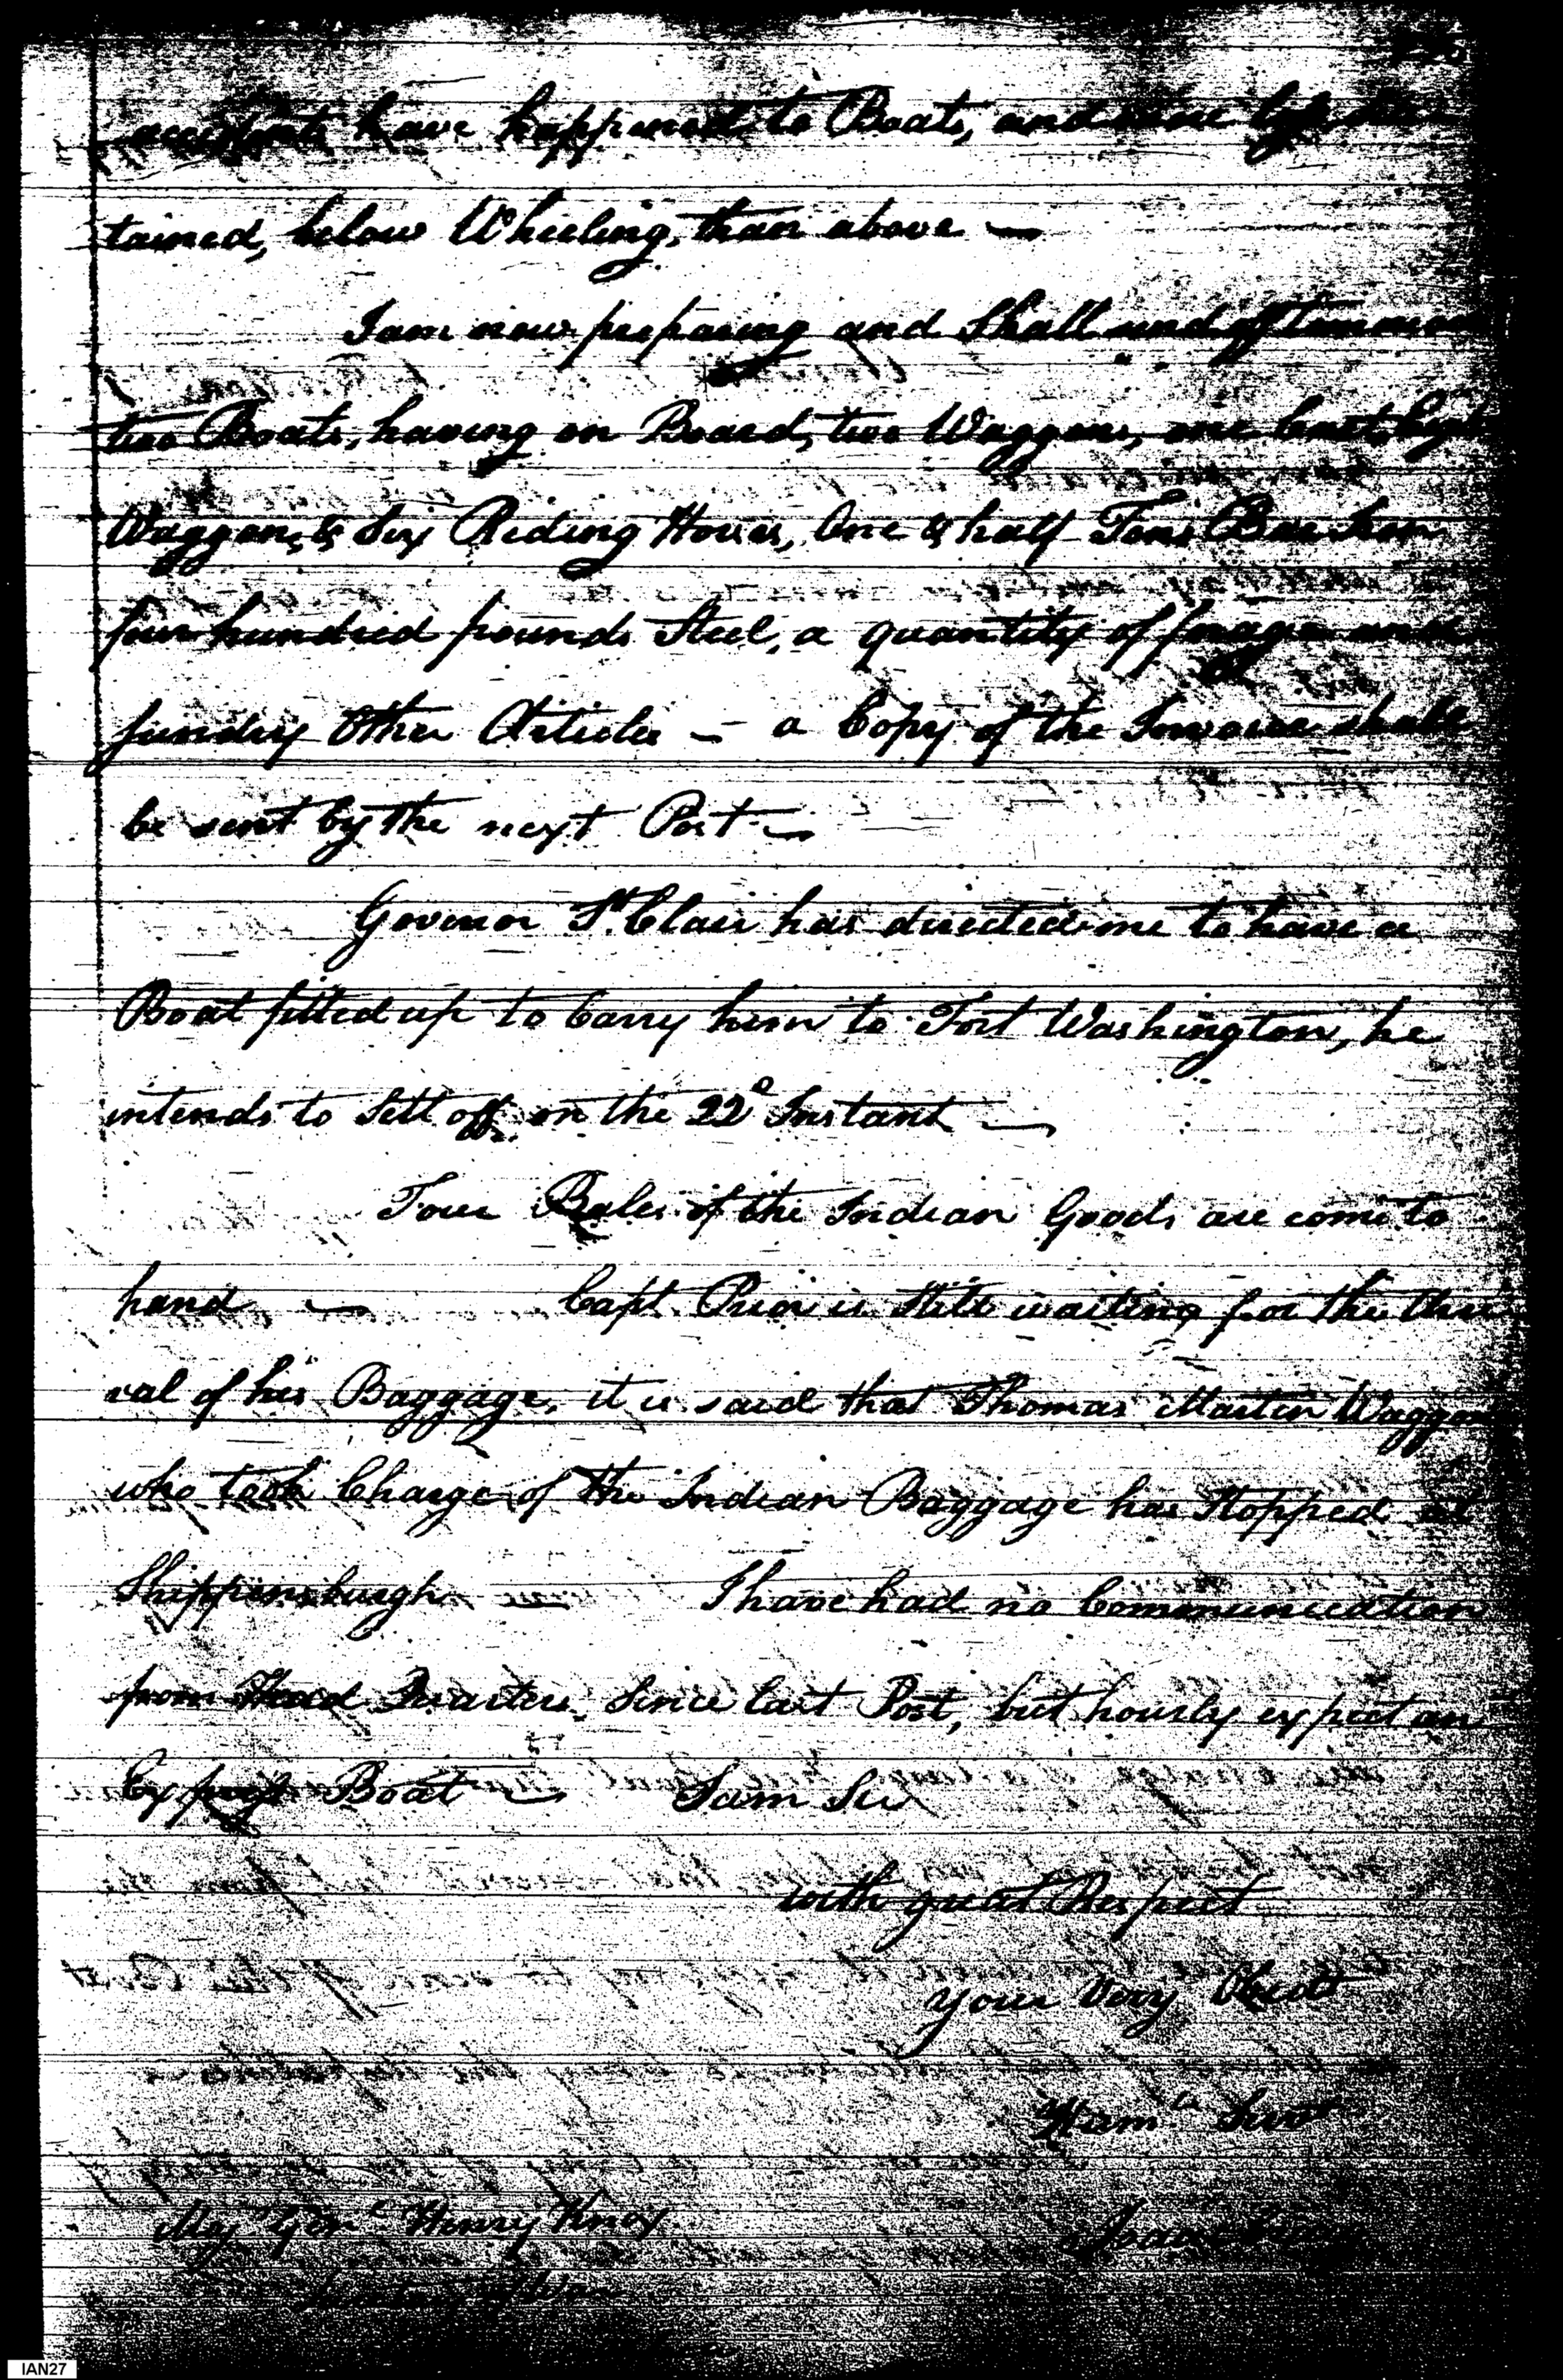 accidents have happened to Boats, and more
tained, below Wheeling, than above —
I am now preparing and Shall send off tomorrow
two Boats, having on Board, two Waggons, one
Waggon, & Six Riding Horses, One & half Tons Bar Iron
four hundred pounds Steel, a quantity of forage and
sundry Other Articles — a Copy of the Invoice shall
be sent by the next Post —
Govenor St. Clair has directed me to have a
Boat fitted up to Carry him to Fort Washington, he
intends to Sett off on the 22d Instant —
Four Bales of the Indian Goods are come to
hand — Capt. Prior is still waiting for the Arri
val of his Baggage, it is said that Thomas Martin Waggoner
who took Charge of the Indian Baggage has Stopped at
Shippensburgh — I have had no Communication
from Head Quarters Since last Post, but hourly expect an
Express Boat — I am Sir
with great Respect
your Very Obedt
Humle Servt
Maj Genl Henry Knox Isaac Craig
Secretary of War
IAN27